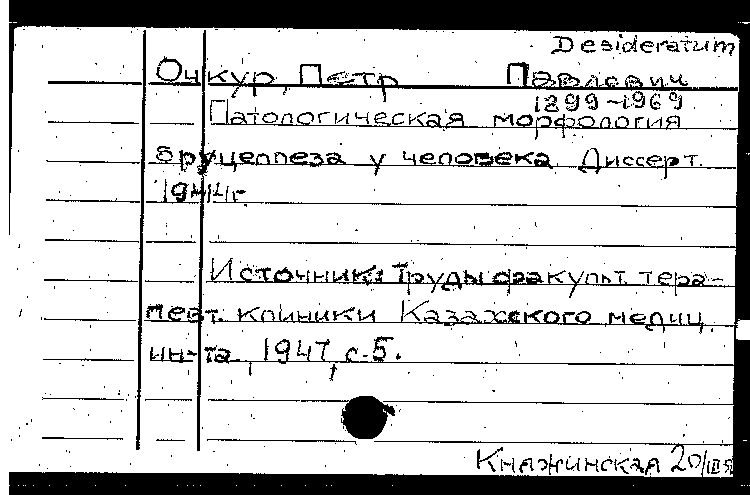 Desideratum
Очкур, Петр Павлович
1899-1969
Патологическая морфология
бруцеллеза у человека. Диссерт.
1944г.
Источник: Труды факульт. тера-
певт. клиники Казахского медиц.
ин-та, 1947, с.5.
Княжинская 20/III